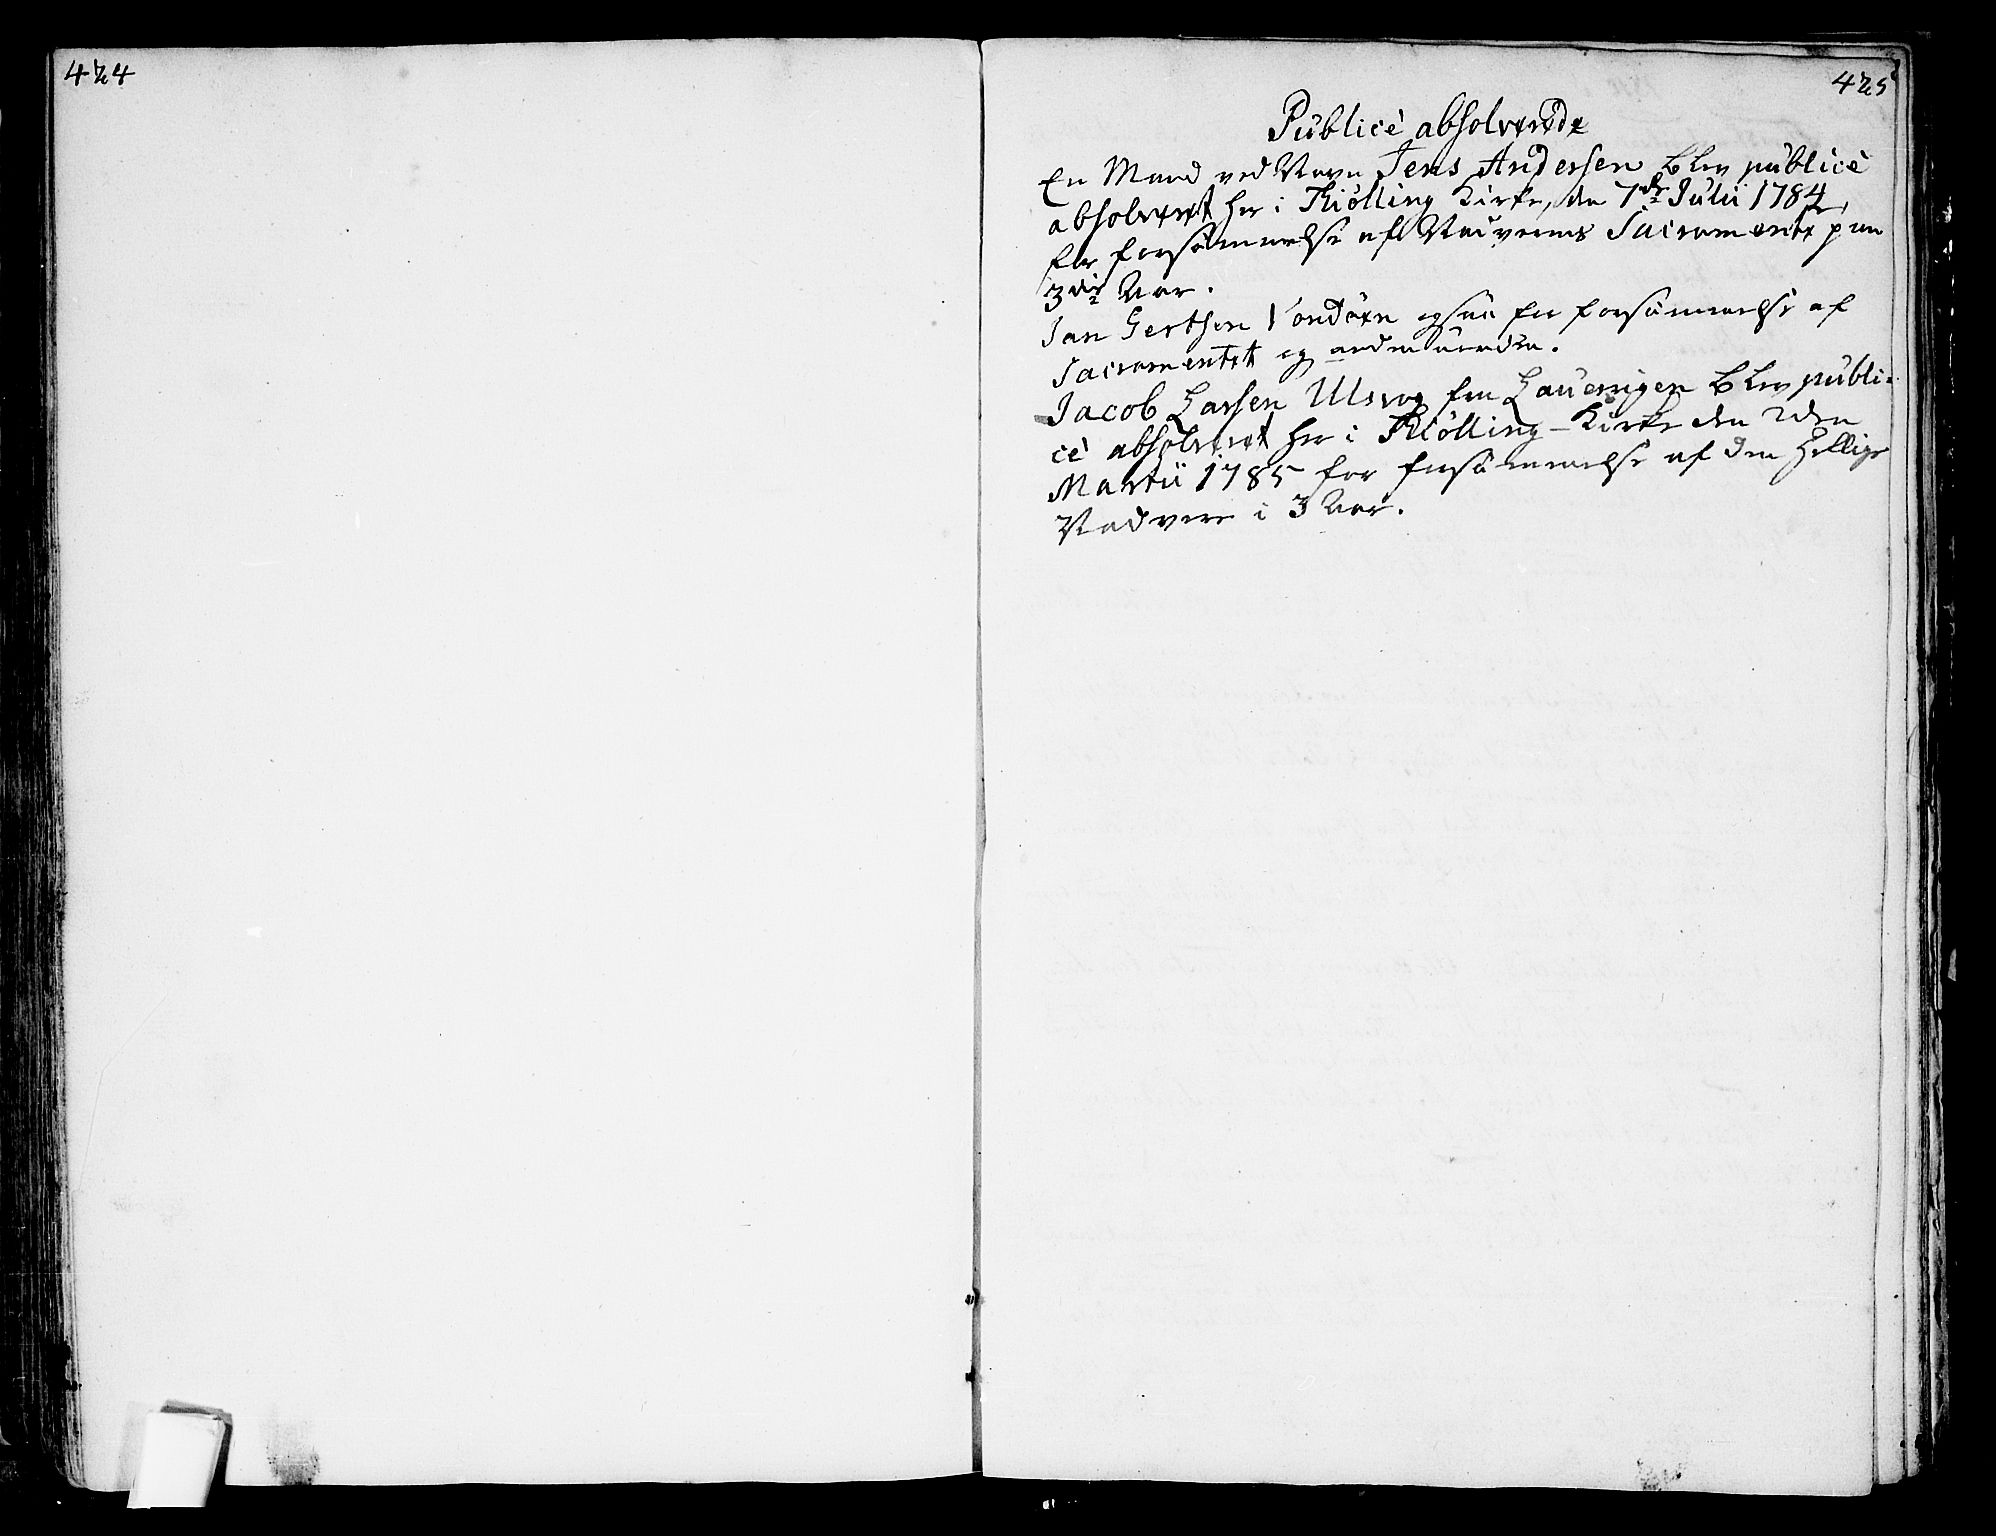 424
425
Publicè absolverede
En Mand ved Navn Jens Andersen blev publicè
absolveret her i Kiölling Kirke, den 7de Julii 1784,
for forsömmelse af Nadverens Sacramente paa
3die Aar.
Jan Gertsen ogsaa for forsömmelse af
Sacramentet og
Jacob Larsen Ulsvog fra Lauervigen blev publi-
cè absolveret her i Kiölling-Kirke den 2den
Martii 1785 for forsömmelse af den hellige
Nadvere i 3 Aar.